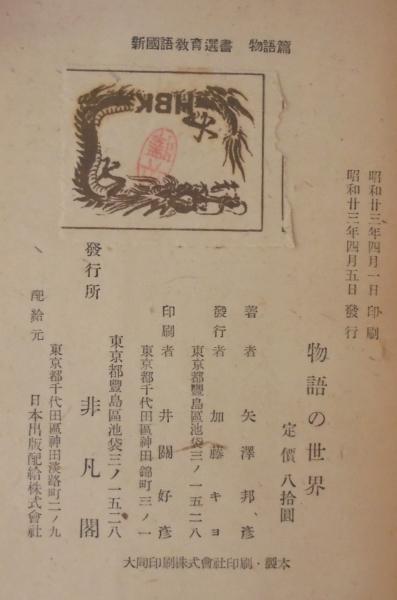 新國語敎育選書　物語篇
HBK
昭和廿三年四月一日　印刷
昭和廿三年四月五日　發行
物語の世界
定價八拾圓
著者　矢澤邦彥
發行者　加藤キヨ
東京都豐島區池袋三ノ一五二八
印刷者　井關好彥
東京都千代田區神田錦町三ノ一
發行所　非凡閣
東京都豐島區池袋三ノ一五二八
配給元　日本出版配給株式會社
東京都千代田區神田淡路町二ノ九
大同印刷株式會社印刷・製本